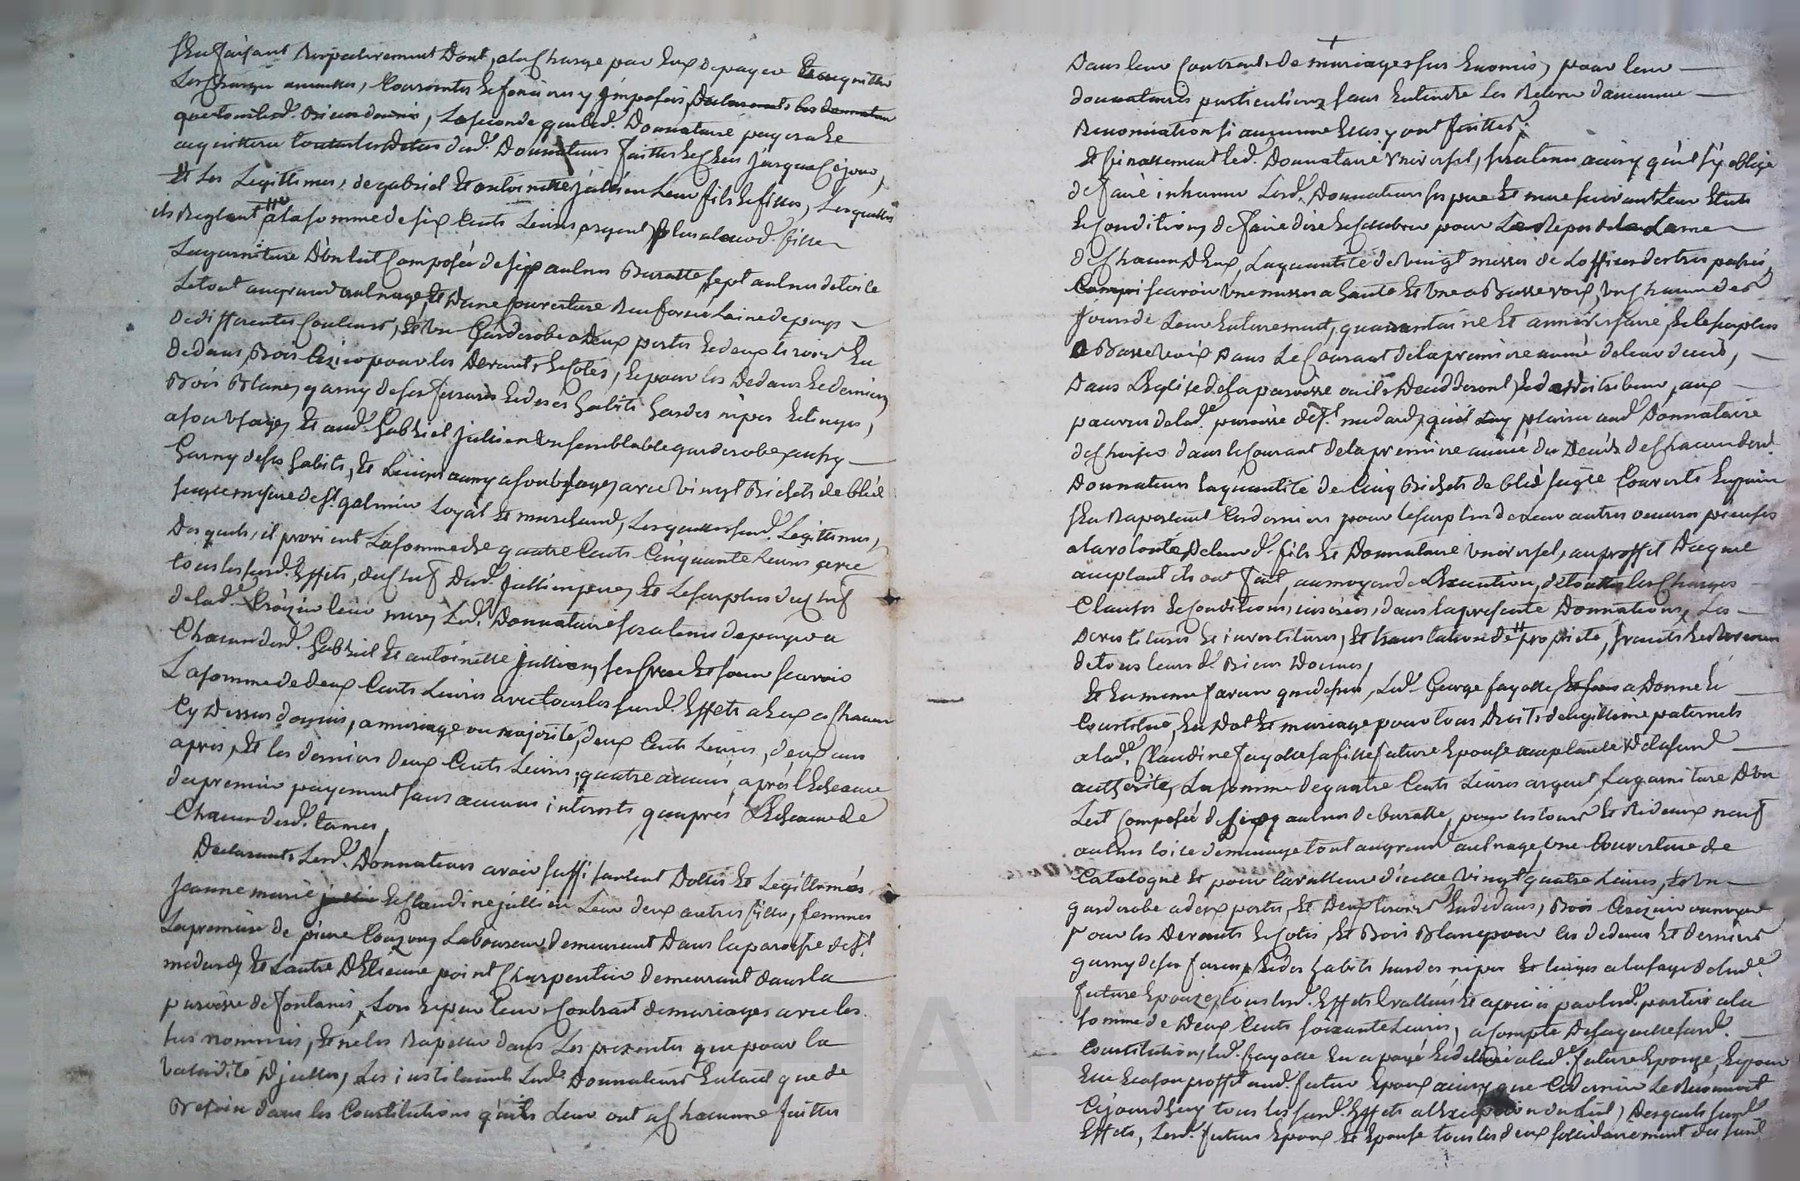 charge par eux de payer et acquitter
Les charges annuelles, Courantes et foncieres y imposés,
La seconde que led. Donnataire payera et
acquittera toutes les dettes desd. Donnateurs faittes et crées jusqua ce jour,
et Les Legittimes, de gabriel et antoinette jullien Leur fils et filles, Lesquelles
ils Reglent a la somme de six Cents Livres argent plus a leurd. fille
La garniture d'un lit Composée de six aulnes Buratte, sept aulnes de toile
Le tout au grand aulnage, et d'une couverture Laine de pays
de differentes Couleurs, et un Garderobe a deux portes et deux tiroirs En
dedans, Bois Cerizier pour les Devants et Cotés, et pour les Dedans et derniers
Bois Blanc, garny de ses ferrures et de ses habits hardes nipes et linges,
a son usage, et aud. Gabriel jullien un semblable garderobe, aussy
Garny de ses habits, et Linges aussy a son usage, avec vingt Bichets de bled
seigle mesure de St. galmier Loyal et marchand, Lesquelles susd. Legittimes,
Desquels, il provient La somme de quatre Cents Cinquante Livres avec
tous les susd. Effets, du chef dud. jullien pere, et Le surplus du chef
de lad. Leur mere, Led. Donnataire sera tenu de payer a
Chacun desd. Gabriel et antoinette jullien, ses frere et soeur scavoir
La somme de deux Cents Livres avec tous les susd. Effets a Eux a chacun
Cy Dessus donnés, a mariage ou majorité, deux Cents Livres, deux ans
apres, Et les derniers deux Cents Livres, quatre années, après l'Echeance
du premier payement sans aucuns interests qu'aprés L'Echeance de
Chacun desd. termes,
Declarants Lesd. Donnateurs avoir suffisament Dottés et Legittimés
Jeanne marie et Claudine jullien Leur deux autres filles, femmes
La premiere de pierre Couzon Laboureur demeurant Dans la paroisse de St.
medard, Et L'autre D'Etienne point Charpentier demeurant dans la
paroisse de fontanès, Lors et par Leur Contract de mariages avec les
sus nommés, et ne les Rapeller dans Les presentes que pour la
validité d'jcelles, Les instituant Lesd. Donnateurs Entant que de
Besoin dans les Constitutions qu'ils Leur ont a chacunne faittes
Dans leur Contract de mariages sus Enoncés, pour leur
donnataires particulieres sans Entendre Les Relever d'aucunne
Renonciation si aucunne Elles y ont faittes,
Et finallement led. Donnataire universel, sera tenu ainsy qu'il s'y oblige
de faire inhumer Lesd. Donnateurs ses pere et mere suivant Leur Etats
et Condition, de faire dire et Celebrer pour Le Repos de Lame
de Chacun D'Eux, La quantité de vingt messes de L'office des trepassés,
scavoir une messe a haute et une a Basse voix, un chacun des
jours de Leur Enterrement, quarantaine et anniversaire, et le surplus
a Basse voix Dans Le Courant de la premiere année de leur deces,
Dans L'Eglise de la paroisse ou ils Decederont, et de distribuer, aux
pauvres de lad. paroisse de St. medard, qu'il plaira aud. Donnataire
de choisir dans le Courant de la premiere année du Decés de Chacun desd.
Donnateurs La quantité de Cinq Bichets de bled seigle Convertis En pain
S'En Raportant Ces derniers pour le surplus de Leur autres oeuvres pieuses
a la volonté de leurd. fils et Donnataire universel, au proffit Duquel
acceptant ils ont fait, au moyen de L'Execution, de toutes les Charges
Clauses et Conditions, inserées, dans la presente Donnation, Les
devestitures et investitures, et translation de proprieté,
de tous leurs d. Biens Donnés,
Et En meme faveur que dessus, Led. George fayolle a Donné et
Constitué, En Dot Et mariage pour tous Droits de legittime paternels
a lad. Claudine fayolle sa fille future Epouse acceptante de la susd.
authorité, La somme de quatre Cents Livres argent La garniture D'un
Lit Composée de six aulnes de buratte, pour les tours et Rideaux neuf
aulnes toile de menage tout au grand aulnage, une Couverture de
Catalogne Et pour la valleur d'icelle vingt quatre Livres, et un
garderobe a deux portes, et Deux tiroirs En dedans, Bois Cerizier
Pour les Devants et Cotés, et Bois Blanc pour les dedans et derniers
garny de ses et des habits hardes nipes et linges a lusage de lad.
future Epouze, tous lesd. Effets Evallués et apreciés par lesd. parties a la
somme de Deux Cents soixante Livres, a compte De laquelle susd.
Constitution, led. fayolle En a payé et delivré a lad. future Epouze, Et pour
Elle et a son proffit aud. futur Epoux ainsy que Ce dernier Le Reconnoit
Cejourdhuy tous les susd. Effets a L'Exception du Lit, Desquels susd.
Effets, Lesd. futurs Epoux et Epouse tous les deux sollidairement des susd.